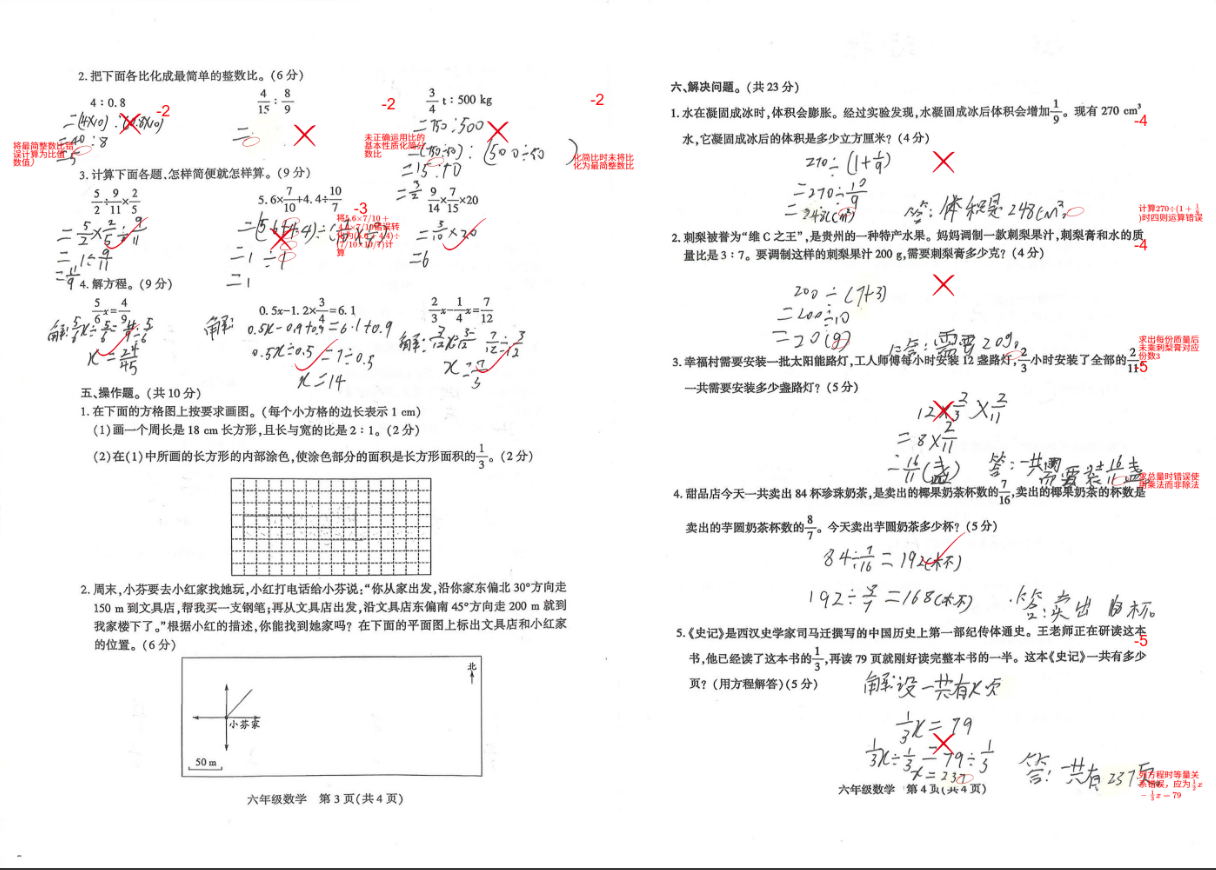 2. 把下面各比化成最简单的整数比。(6分)
4：0.8
4/15：8/9
3/4 t：500 kg
=(4×10)：(0.8×10)
=
=750：500
=40：8
=(750÷50)：(500÷50)
=5
=15：10
=3/2
-2
-2
-2
将最简整数比错
误计算为比值（
数值）
未正确运用比的
基本性质化简分
数比
化简比时未将比
化为最简整数比
3. 计算下面各题、怎样简便就怎样算。(9分)
5/2÷9/11×2/5
5.6×7/10+4.4÷10/7
9/14×7/15×20
=5/2×2/5÷9/11
=1÷9/11
=11/9
=1÷1
=1
=3/10×20
=6
-3
4. 解方程。(9分)
5/6x=4/9
0.5x-1.2×3/4=6.1
2/3x-1/4x=7/12
解:5/6x÷5/6=4/9÷5/6
x=24/45
解:
0.5x-0.9+0.9=6.1+0.9
0.5x÷0.5=7÷0.5
x=14
解:
五、操作题。(共10分)
1. 在下面的方格图上按要求画图。(每个小方格的边长表示1 cm)
(1)画一个周长是18 cm长方形,且长与宽的比是2：1。(2分)
(2)在(1)中所画的长方形的内部涂色,使涂色部分的面积是长方形面积的1/3。(2分)
2. 周末,小芬要去小红家找她玩,小红打电话给小芬说:“你从家出发,沿你家东偏北30°方向走
150 m到文具店,帮我买一支钢笔;再从文具店出发,沿文具店东偏南45°方向走200 m就到
我家楼下了。”根据小红的描述,你能找到她家吗? 在下面的平面图上标出文具店和小红家
的位置。(6分)
北
小芬家
50 m
六年级数学 第3页(共4页)
六、解决问题。(共23分)
1. 水在凝固成冰时,体积会膨胀。经过实验发现,水凝固成冰后体积会增加1/9。现有270 cm³
水,它凝固成冰后的体积是多少立方厘米? (4分)
-4
270÷(1+1/9)
=270÷10/9
=248(cm³)
答:体积是248cm³。
计算270÷(1+1/9
)时四则运算错误
2. 刺梨被誉为“维C之王”,是贵州的一种特产水果。妈妈调制一款刺梨果汁,刺梨膏和水的质
量比是3：7。要调制这样的刺梨果汁200 g,需要刺梨膏多少克? (4分)
-4
200÷(7+3)
=200÷10
=20(g)
答:需要20g。
求出每份质量后
未乘刺梨膏对应
份数3
3. 幸福村需要安装一批太阳能路灯,工人师傅每小时安装12盏路灯,2/3小时安装了全部的2/11。
一共需要安装多少盏路灯? (5分)
-5
12×2/3×2/11
=8×2/11
=16/11(盏)
答:一共需要装16/11盏
求总量时错误使
用乘法而非除法
4. 甜品店今天一共卖出84杯珍珠奶茶,是卖出的椰果奶茶杯数的7/16,卖出的椰果奶茶的杯数是
卖出的芋圆奶茶杯数的8/7。今天卖出芋圆奶茶多少杯? (5分)
84÷7/16=192(杯)
192÷8/7=168(杯)
5. 《史记》是西汉史学家司马迁撰写的中国历史上第一部纪传体通史。王老师正在研读这本
书,他已经读了这本书的1/3,再读79页就刚好读完整本书的一半。这本《史记》一共有多少
页? (用方程解答)(5分)
-5
解:设一共有x页
1/3x=79
1/3x÷1/3=79÷1/3
x=237
答:一共有237页。
列方程时等量关
系错误，应为1/2x
-1/3x=79
六年级数学 第4页(共4页)